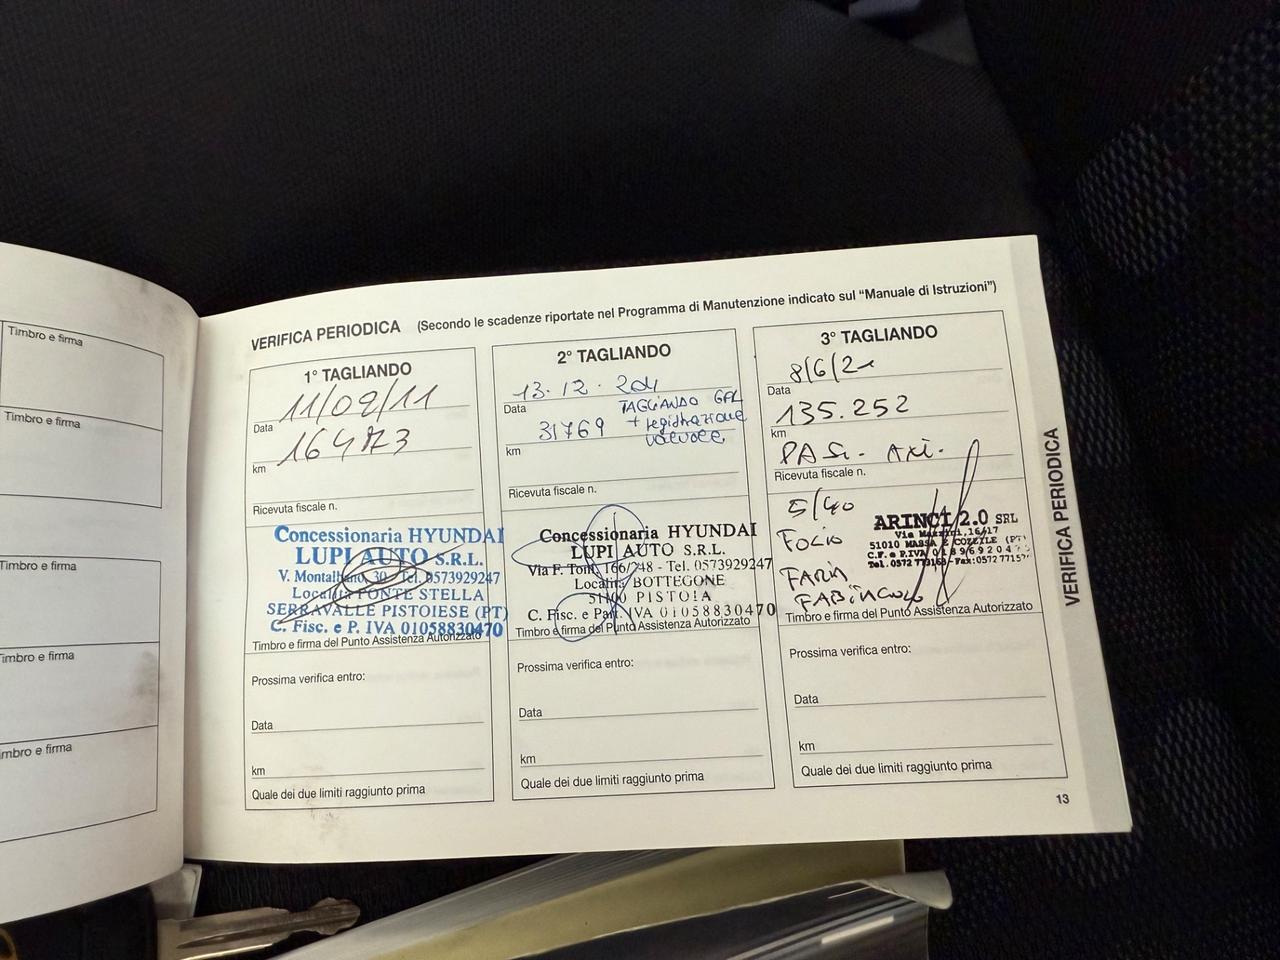 Timbro e firma
Timbro e firma
Timbro e firma
Timbro e firma
Timbro e firma
VERIFICA PERIODICA (Secondo le scadenze riportate nel Programma di Manutenzione indicato sul "Manuale di Istruzioni")
1° TAGLIANDO
Data 11/02/11
km
Ricevuta fiscale n.
Concessionaria HYUNDAI
LUPI AUTO S.R.L.
V. Montalbano, 30 - Tel. 0573929247
Località PONTE STELLA
SERRAVALLE PISTOIESE (PT)
C. Fisc. e P. IVA 01058830470
Timbro e firma del Punto Assistenza Autorizzato
Prossima verifica entro:
Data
km
Quale dei due limiti raggiunto prima
2° TAGLIANDO
13.12.
Data TAGLIANDO GPL
31769 + registrazione
km valvole
Ricevuta fiscale n.
Concessionaria HYUNDAI
LUPI AUTO S.R.L.
Via F. Toni, 166/ 48 - Tel. 0573929247
Località BOTTEGONE
51100 PISTOIA
C. Fisc. e Part. IVA 01058830470
Timbro e firma del Punto Assistenza Autorizzato
Prossima verifica entro:
Data
km
Quale dei due limiti raggiunto prima
3° TAGLIANDO
8/6/21
Data
135.252
km
Ricevuta fiscale n.
5/40
ARINCI 2.0 SRL
51010 MASSA E COZZILE (PT)
Timbro e firma del Punto Assistenza Autorizzato
Prossima verifica entro:
Data
km
Quale dei due limiti raggiunto prima
VERIFICA PERIODICA
13